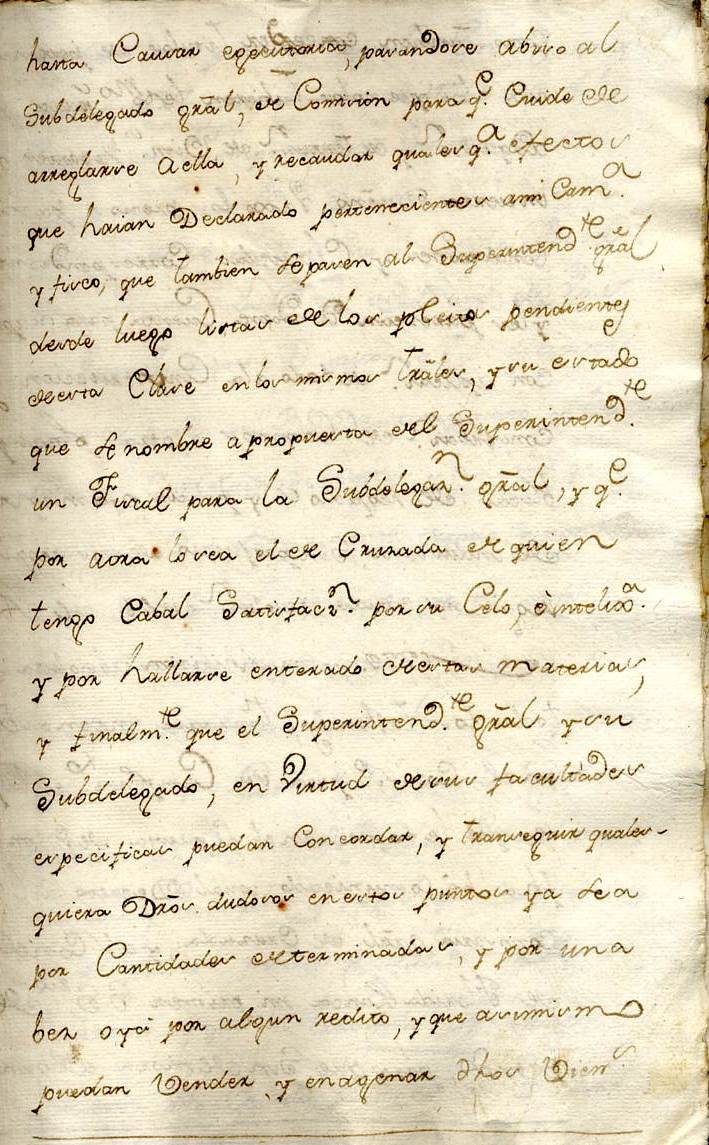 hasta Causar egecutoria, pasandose abiso al
Subdelegado grãl, de Comision para q.e Cuide de
arreglarse a ella, y recaudar qualesq.a efectos
que haian Declarado pertenecientes a mi Cam.a
y fisco, que tambien se pasen al Superintend.te grãl
desde luego listas de los pleitos pendientes
de esta Clase en los mismos trãles, y su estado
que se nombre a propuesta del Superintend.te
un Fiscal para la Subdelegaz.n grãl, y q.e
por aora lo sea el de Cruzada de quien
tengo Cabal Satisfacz.n por su Celo, è intelix.a
y por hallarse enterado de estas materias,
y finalm.te que el Superintend.te grãl y su
Subdelegado, en Virtud de sus facultades
especificas puedan Concordar, y transeguir quales-
quiera Drõs. dudosos en estos puntos ya sea
por Cantidades determinadas, y por una
bez o ya por algun redito, y que asimismo
puedan Vender, y enagenar dhos Vien.s